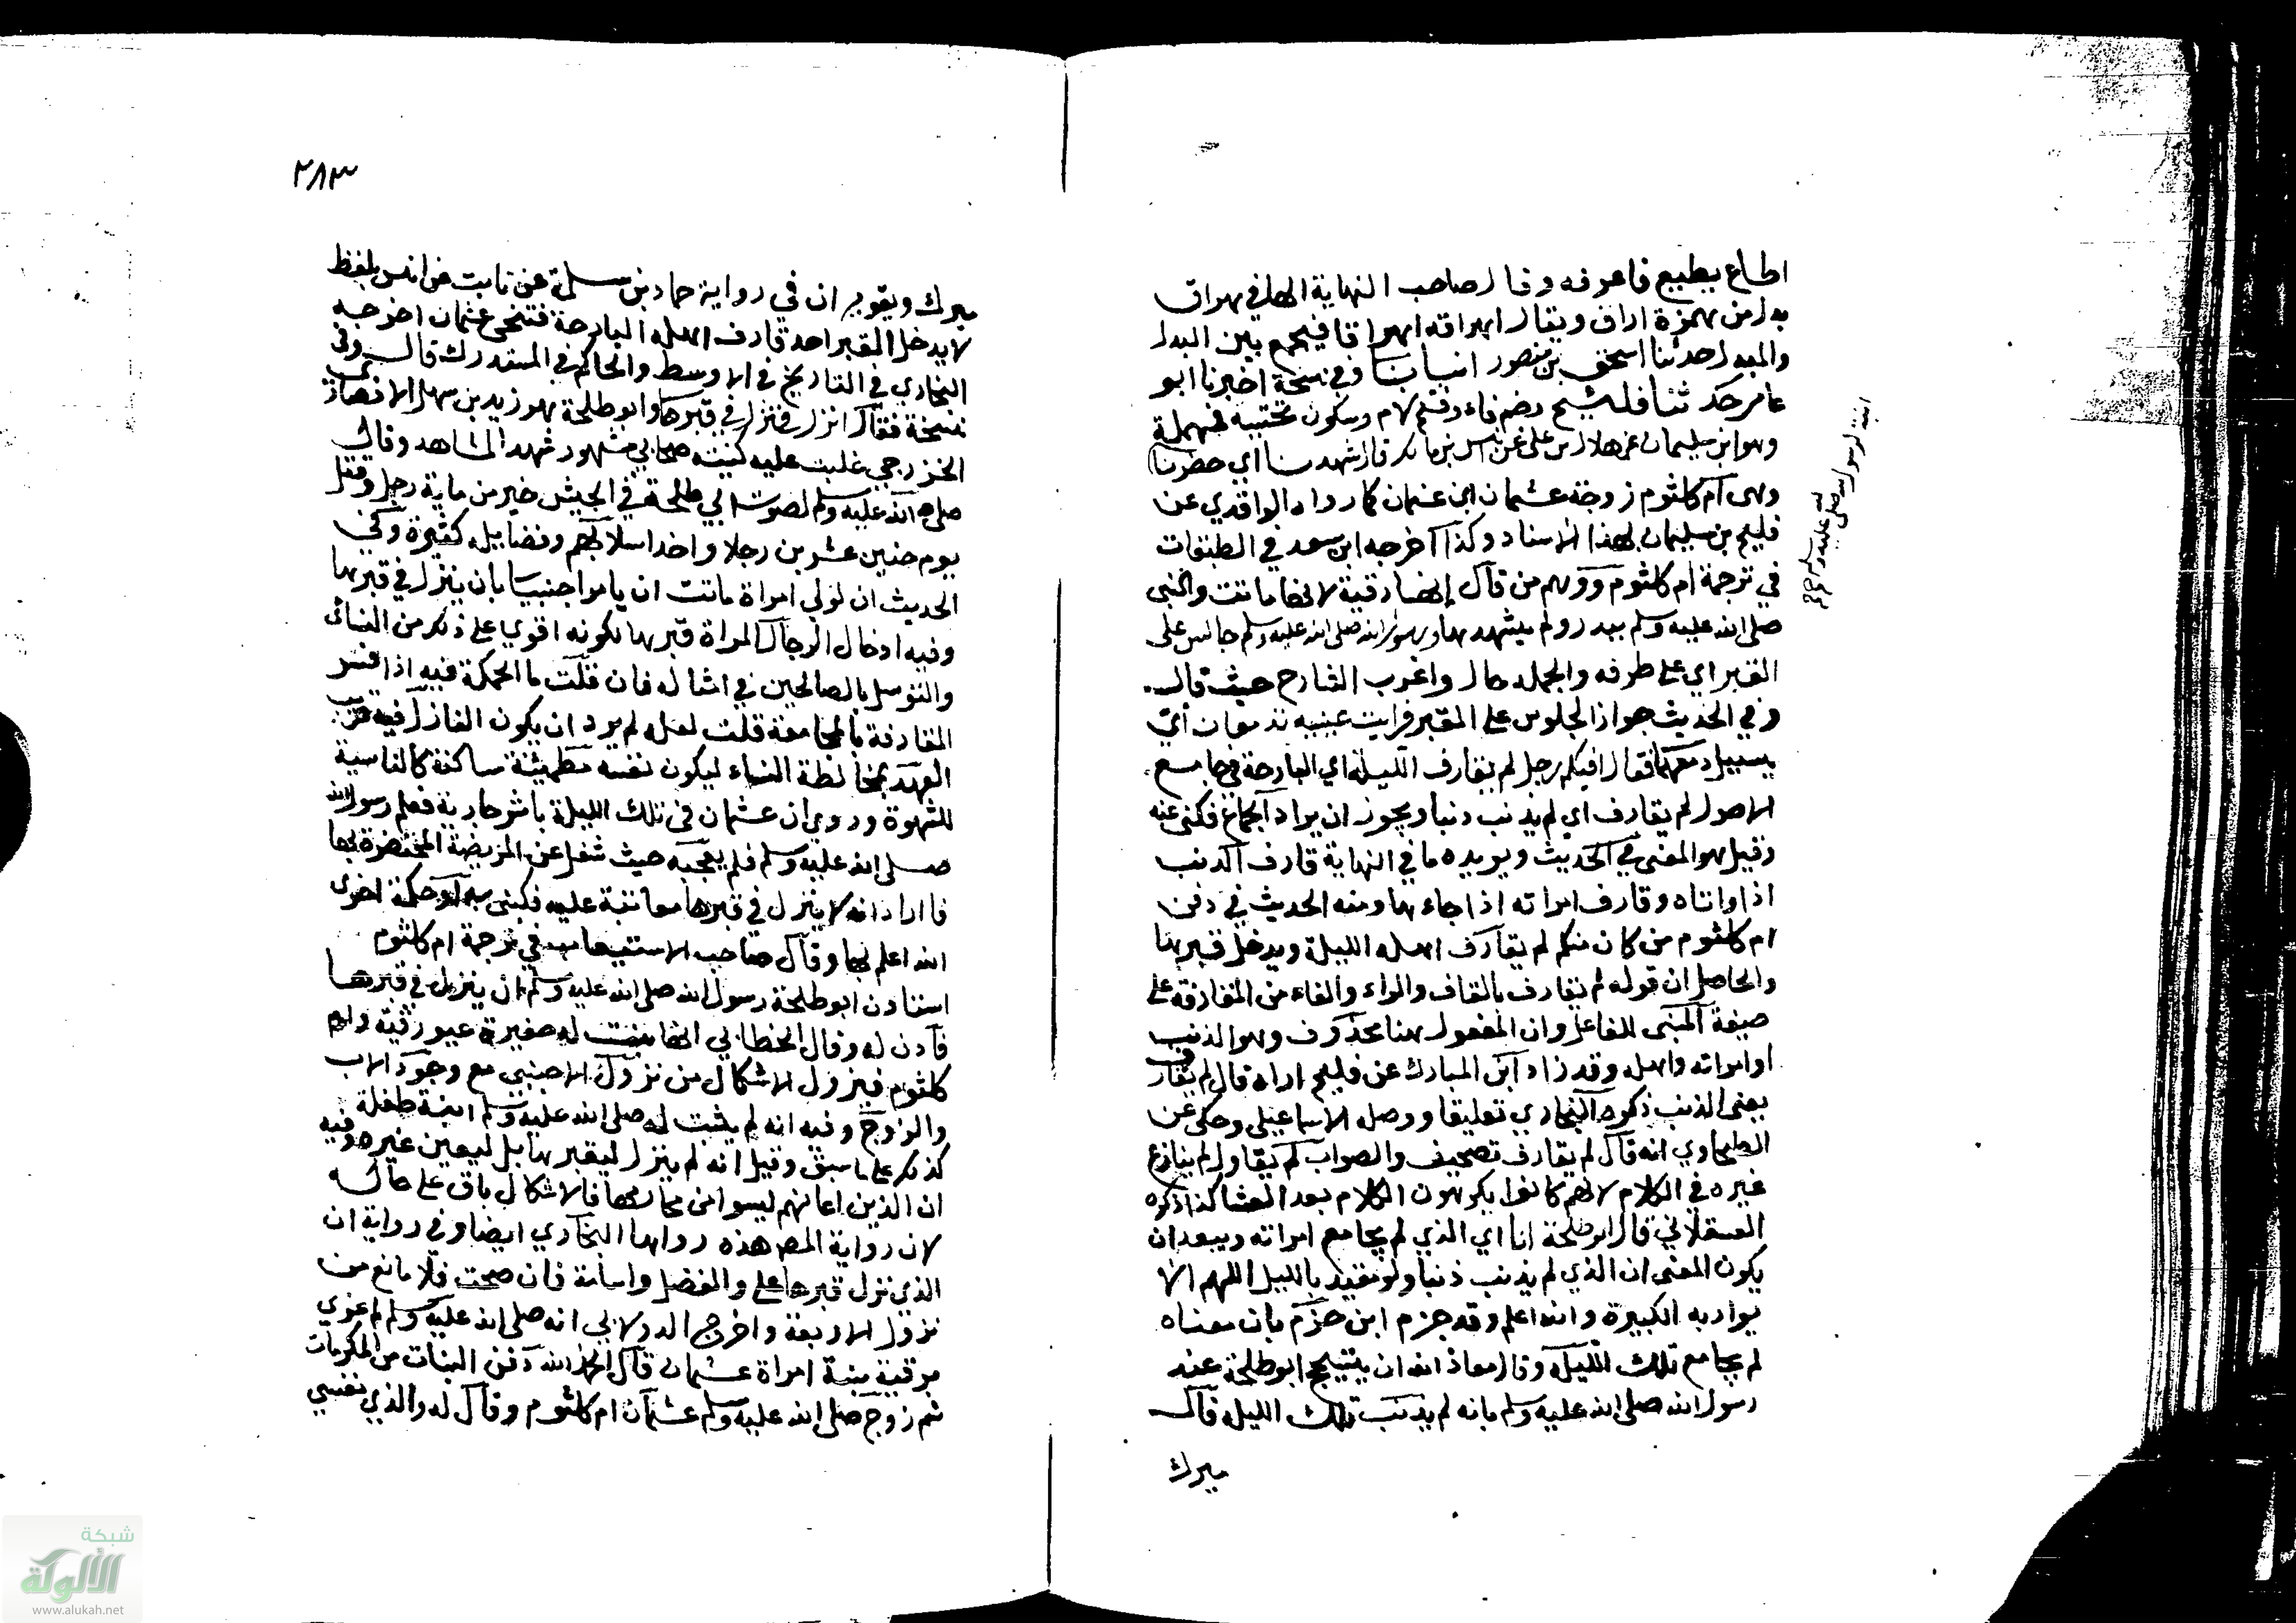 اطاع يطيع فاعرفه وقال صاحب النهاية الهاء في هراق
بدل من همزة اراق ويقال اهراقه اهراقا فيجمع بين البدل
والمبدل حدثنا اسحق بن منصور انبانا وفي نسخة اخبرنا ابو
عامر حدثنا فليح بضم فاء وفتح لام وسكون تحتية فمهملة
وهو ابن سليمان عن هلال بن علي عن انس بن مالك قال شهدنا اي حضرنا
ابنة لرسول الله صلى الله عليه وسلم صح
وهي ام كلثوم زوجة عثمان ابن عفان كما رواه الواقدي عن
فليح بن سليمان بهذا الاسناد وكذا اخرجه ابن سعد في الطبقات
في ترجمة ام كلثوم ووهم من قال انها رقية لانها ماتت والنبي
صلى الله عليه وسلم ببدر ولم يشهدها ورسول الله صلى الله عليه وسلم جالس على
القبر اي على طرفه والجملة حال واغرب الشارح حيث قال
وفي الحديث جواز الجلوس على القبر فرايت عينيه تدمعان اي
يسيل دمعهما فقال افيكم رجل لم يقارف الليلة اي البارحة في جامع
الاصول لم يقارف اي لم يذنب ذنبا ويجوز ان يراد الجماع فكنى عنه
وقيل هو المعنى في الحديث ويويده ما في النهاية قارف الذنب
اذا واتاه وقارف امراته اذا جاءها ومنه الحديث في دفن
ام كلثوم من كان منكم لم يقارف اهله الليلة ويدخل قبرها
والحاصل ان قوله لم يقارف بالقاف والراء والفاء من المقارفة على
صيغة المبنى للفاعل وان المفعول هنا محذوف وهو الذنب
او امراته واهله وقد زاد ابن المبارك عن فليح اراه قال لم يقارف
يعني الذنب ذكره البخاري تعليقا ووصله الاسماعيلي وحكى عن
الطحاوي انه قال لم يقارف تصحيف والصواب لم يقاول لم ينازع
غيره في الكلام لانهم كانوا يكرهون الكلام بعد العشا كذا ذكره
العسقلاني قال ابو طلحة انا اي الذي لم يجامع امراته ويبعد ان
يكون المعنى ان الذي لم يذنب ذنبا ولو مقيد بالليل اللهم الا
يراد به الكبيرة والله اعلم وقد جزم ابن حزم بان معناه
لم يجامع تلك الليلة وقال معاذ الله ان يتبجح ابو طلحة عند
رسول الله صلى الله عليه وسلم بانه لم يذنب تلك الليلة قال
ميرك
٢٨٣
ميرك ويقويه ان في رواية حماد بن سلمة عن ثابت عن انس بلفظ
لا يدخل القبر احد قارف اهله البارحة فتنحى عثمان اخرجه
البخاري في التاريخ في الاوسط والحاكم في المستدرك قال وفي
نسخة فقال انزل فنزل في قبرها وابو طلحة هو زيد بن سهل الانصاري
الخزرجي غلبت عليه كنيته صحابي مشهور شهد المشاهد وقال
صلى الله عليه وسلم لصوت ابي طلحة في الجيش خير من ماية رجل وقتل
يوم حنين عشرين رجلا واخذ اسلابهم وفضايله كثيرة وفي
الحديث ان لولي امراة ماتت ان يامر اجنبيا بان ينزل في قبرها
وفيه ادخال الرجال المراة قبرها لكونه اقوى على ذلك من النساء
والتوسل بالصالحين في امثاله فان قلت ما الحكمة فيه اذا فسر
المقارفة بالمجامعة قلت لعله لم يرد ان يكون النازل فيه قريب
العهد بمخالطة النساء ليكون نفسه مطمئنة ساكنة كالناسية
للشهوة وروي ان عثمان في تلك الليلة باشر جارية فعلم رسول الله
صلى الله عليه وسلم فلم يعجبه حيث شغل عن المريضة المحتضرة بها
فاراد انه لا ينزل في قبرها معاتبة عليه فكنى به او حكمة اخرى
الله اعلم بها وقال صاحب الاستيعاب في ترجمة ام كلثوم
استاذن ابو طلحة رسول الله صلى الله عليه وسلم ان ينزل في قبرها
فاذن له وقال الخطابي انها بنت له صغيرة غير رقية وام
كلثوم فيزول الاشكال من نزول الاجنبي مع وجود الاب
والزوج وفيه انه لم يثبت له صلى الله عليه وسلم ابنة طفلة
كذلك على ما سبق وقيل انه لم ينزل ليقبرها بل ليعين غيره وفيه
ان الذين اعانهم ليسوا من محارمها فالاشكال باق على حاله
لان رواية المص هذه رواها البخاري ايضا وفي رواية ان
الذي نزل قبرها علي والفضل واسامة فان صحت فلا مانع من
نزول الاربعة واخرج الدولابي انه صلى الله عليه وسلم لما عزي
برقية بنته امراة عثمان قال الحمد لله دفن البنات من المكرمات
ثم زوج صلى الله عليه وسلم عثمان ام كلثوم وقال له والذي نفسي
شبكة
الألوكة
www.alukah.net